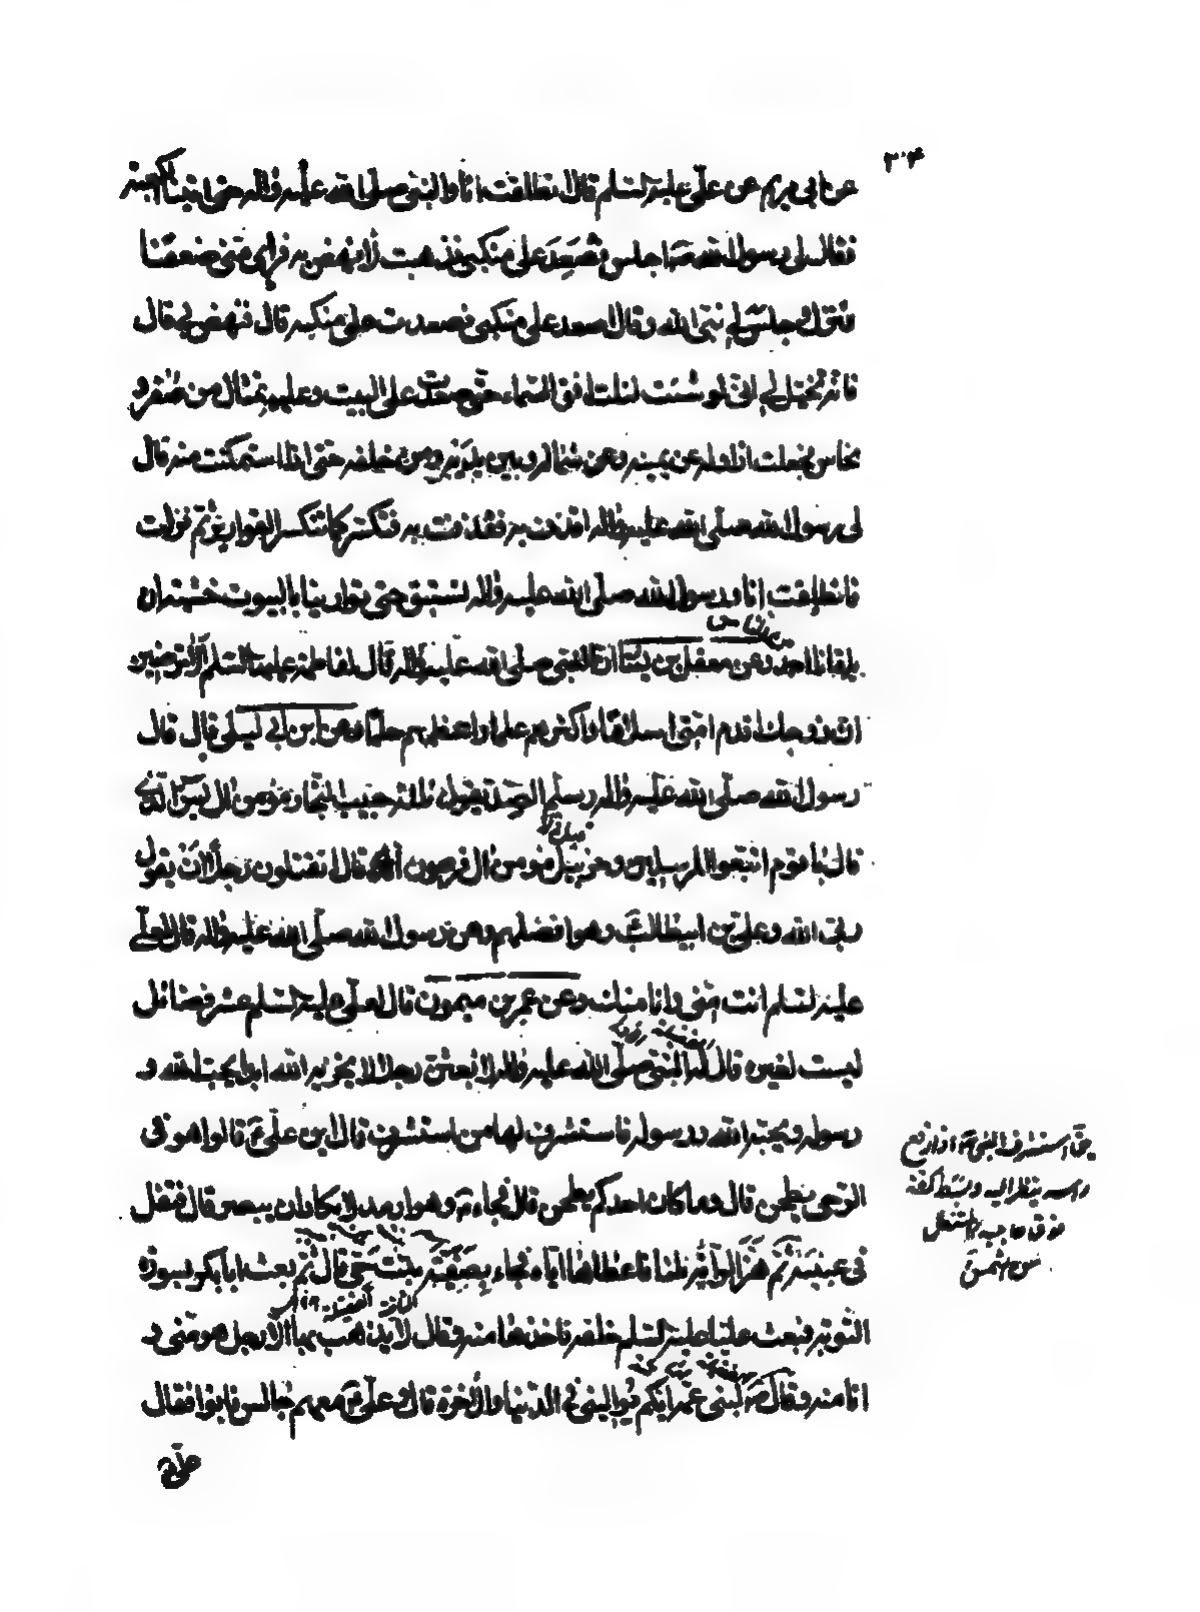 ٣٠٤
عن ابي مريم عن علّي عليه السّلم قال انطلقت انا والنبّي صلّى الله عليه واله حتى اتينا الكعبة
فقال لي رسول الله ص اجلس وصَعِدَ على منكبي فذهبت لانهض به فراى منّي ضعفًا
فنزل وجلس لي نبّي الله وقال اصعد على منكبي فصعدت على منكبه قال فنهض بي قال
فانّه تخيّل لي انّي لو شئت لنلت افق السّماء حتّى صعدت على البيت وعليه تمثال من صُفر و
نحاس فجعلت ازاوله عن يمينه وعن شماله وبين يديه ومن خلفه حتى اذا استمكنت منه قال
لي رسول الله صلّى الله عليه واله اقذف به فقذفت به فتكسّر كما تنكسر القوارير ثم نزلت
فانطلقت انا ورسول الله صلّى الله عليه واله نستبق حتى توارينا بالبيوت خشية ان
من الناس
يلقانا احد وعن معقل بن يسار انّ النبّي صلّى الله عليه واله قال لفاطمة عليها السّلم الا ترضين
انّ زوجك اقدم امّتي اسلامًا واكثرهم علما واعظمهم حلمًا وعن ابن ابي ليلى قال قال
رسول الله صلّى الله عليه واله وسلم الصدّيقون ثلثة حبيب النجّار مؤمن ال يس الّذى
قال يا قوم اتبعوا المرسلين وحزبيل مؤمن ال فرعون قال اتقتلون رجلًا ان يقول
ربّي الله وعلّي بن ابيطالب وهو افضلهم وعن رسول الله صلّى الله عليه واله قال لعلّي
عليه السّلم انت منّي وانا منك وعن عمرو بن ميمون قال لعلّي عليه السّلم عشر فضائل
ليست لغيره قال له النبّي صلّى الله عليه واله لابعثنّ رجلا لا يخزيه الله ابدا يحبّ الله و
رسوله ويحبّه الله ورسوله فاستشرف لها من استشرف قال اين علّي ع قالوا هو في
الرّحى يطحن قال وما كان احدكم يطحن قال فجاء وهو ارمد لا يكاد ان يبصر قال فتفل
في عينيه ثم هزّ الراية ثلثا فاعطاها ايّاه فجاء بصفيّة بنت حيّ قال ثمّ بعث ابا بكر بسورة
التّوبة فبعث عليّا عليه السّلم خلفه فاخذها منه وقال لا يذهب بها الا رجل هو منّي و
انا منه وقال ص لبني عمّه ايّكم يواليني في الدّنيا والاخرة قال وعلّي ع معهم جالس فابوا فقال
علّي
يق استشرف الشي اذا رفع
راسه ينظر اليه وبسط كفّه
فوق حاجبه كالمستظل
من الشمس